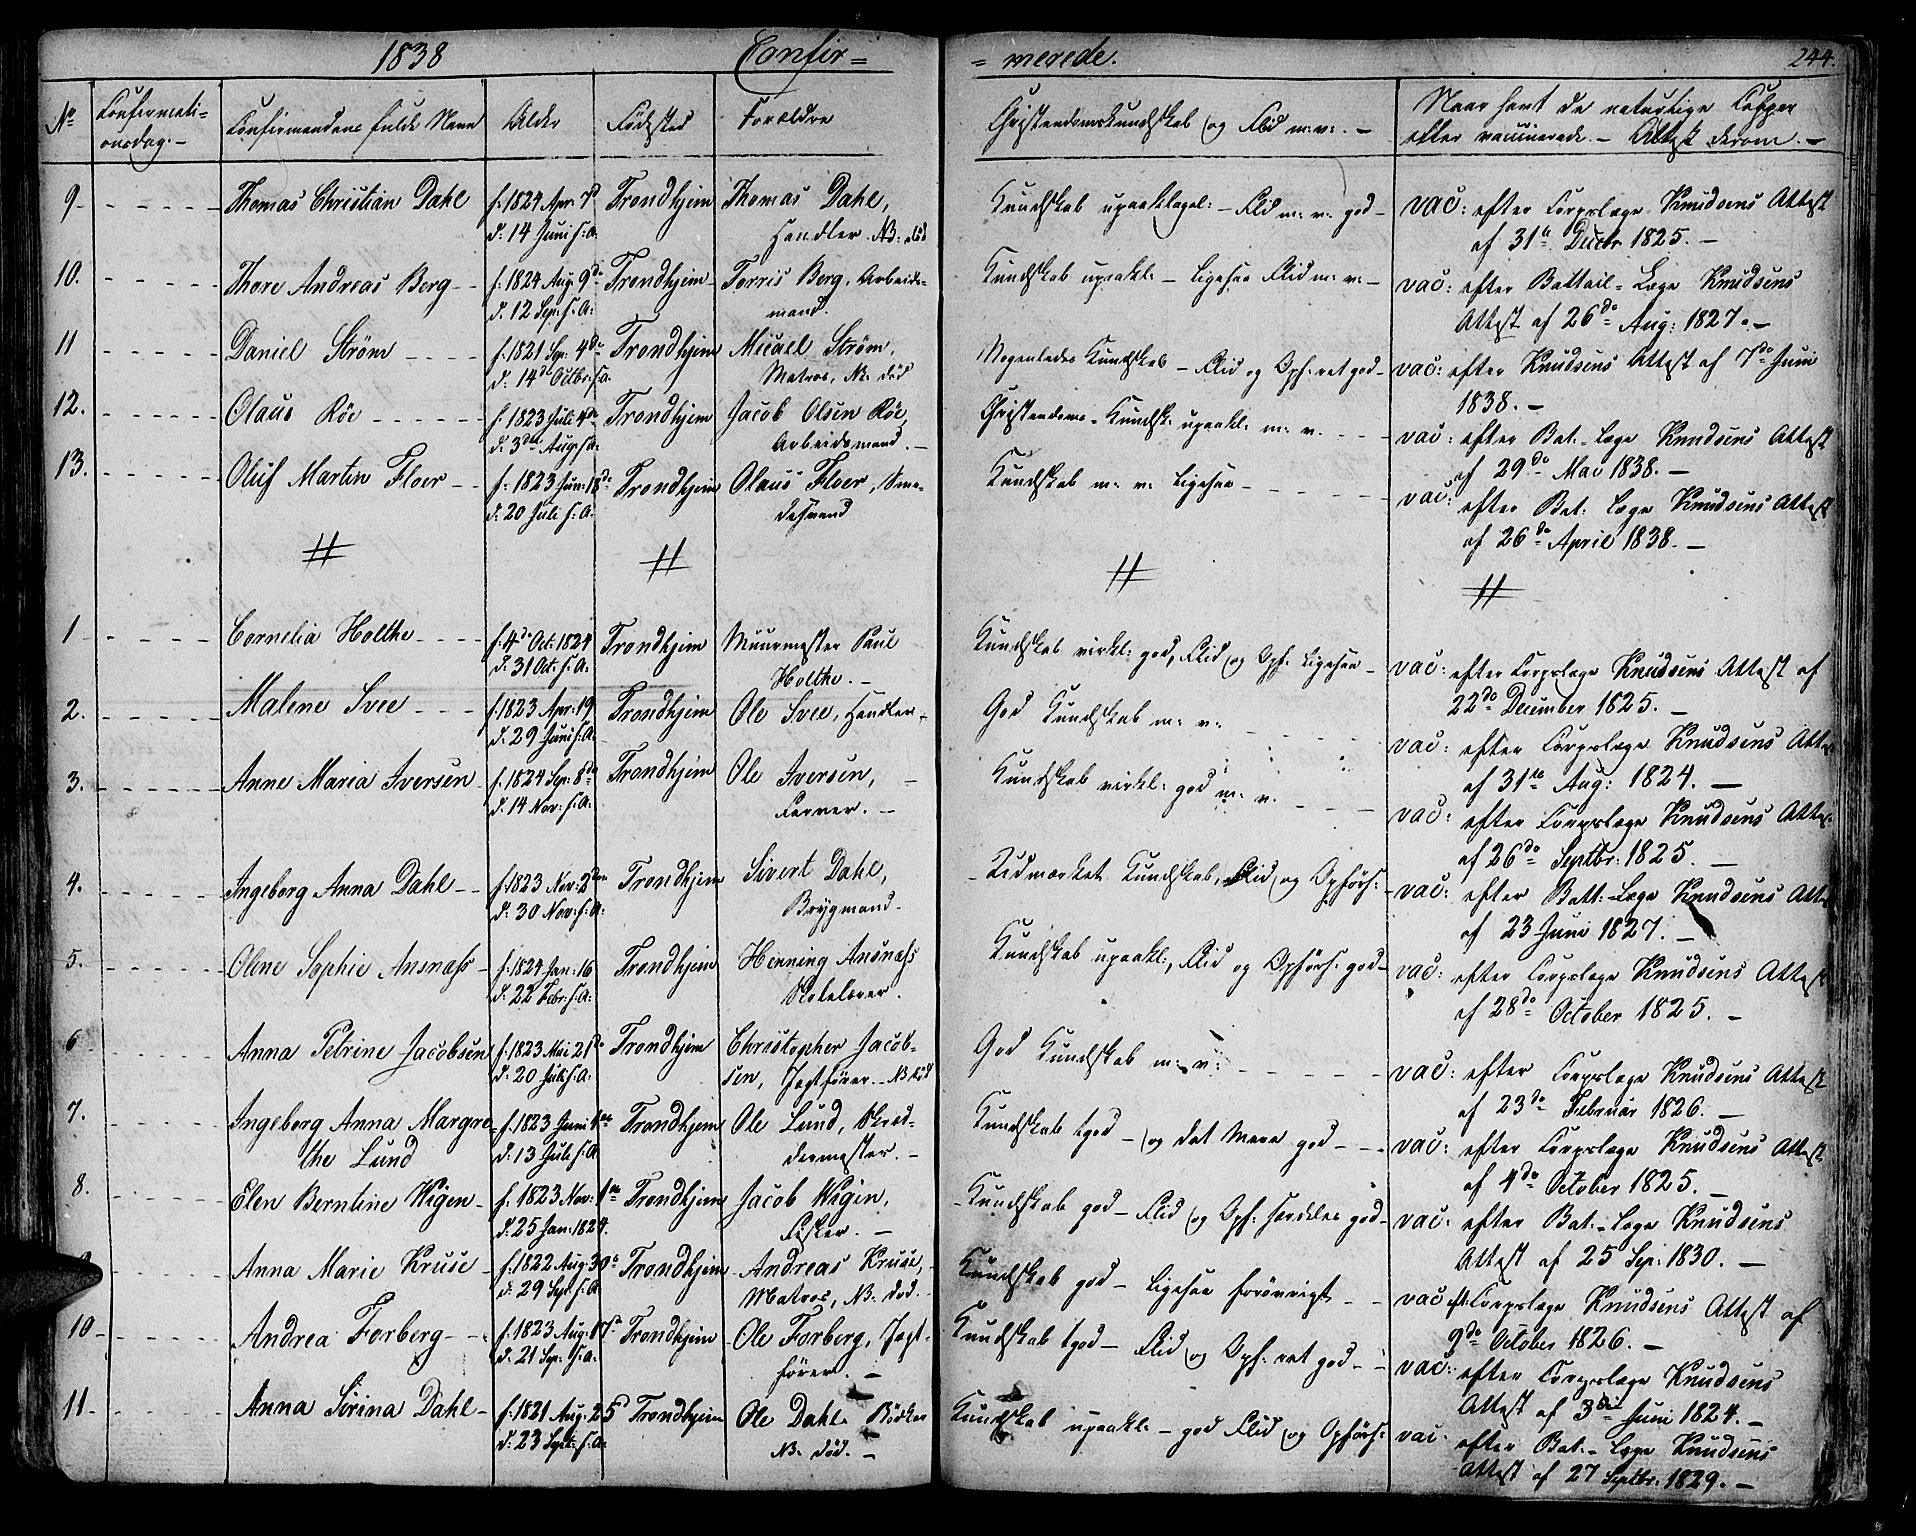 1838 Confir=
=merede. 244.
No Confirmati=
onsdag.- Confirmandens fulde Navn Alder Fødested Forældre Christendomskundskab og Flid m: v: - Naar havt de naturlige Kopper
eller vaccinerede. - Attest derom. -
9 Thomas Christian Dahl f. 1824 Apr: 7d Trondhjem Thomas Dahl, Kundskab upaaklagel: - Flid m: v: god - vac: efter Corpslæge Knudsens Attest
d: 14 Juni s: A: Handler. NB: død af 31te Decbr 1825. -
10. Thore Andreas Berg f: 1824 Aug: 9de Trondhjem Torris Berg, Arbeids= Kundskab upaakl: - ligesaa Flid m: v: - vac: efter Battail=Læge Knudsens
d. 12 Sep: s: A: mand. Attest af 26de Aug: 1827. -
11 Daniel Strøm f: 1821 Sep: 4de Trondhjem Micael Strøm, Kundskab - Flid og Opf: ret god - vac: efter Knudsens Attest af 7de Juni
d: 14de Octbr: s: a: Matros, NB: død 1838. -
12. Olaus Röe f: 1823 Juli 4de Trondhjem Jacob Olsen Röe, Christendoms=Kundsk: upaakl: m: v. vac: efter Bat:=Læge Knudsens Attest
d: 3die Aug: s: a: Arbeidsmand. af 29de Mai 1838. -
13. Oluf Martin Floer f: 1823 Jun: 18de Trondhjem Olaus Floer, Sme= Kundskab m: v: ligesaa vac: efter Bat: Læge Knudsens Attest
d: 20 Juli s: A: desvend af 26de April 1838. -
1 Cornelia Holthe f. 4de Oct: 1824 Trondhjem Muurmester Paul Kundskab virkl: god, Flid og Opf: ligesaa - vac: efter Corpslæge Knudsens Attest af
d. 31 Oct: s: A: Holthe. - 22de December 1825. -
2. Malene Svee f. 1823 Apr: 19 Trondhjem Ole Svee, Handler God Kundskab m: v: vac: efter Corpslæge Knudsens Attest
d: 29 Juni s: A: af 31te Aug: 1824. -
3. Anne Maria Iversen f: 1824 Sep: 8de Trondhjem Ole Iversen, Kundskab virkl: god m: v: vac: efter Corpslæge Knudsens Attest
d. 14 Nov: s: A: Farver. - af 26de Septbr: 1825. -
4. Ingeborg Anna Dahl f: 1823 Nov: 2den Trondhjem Sivert Dahl, Udmærket Kundskab, Flid og Opførs: vac: efter Batt:-Læge Knudsens Attest
d: 30 Nov: s: A: Brygmand. af 23 Juni 1827. -
5. Olene Sophie Ansnæss f. 1824 Jan: 16 Trondhjem Henning Ansnæss Kundskab upaakl:, Flid og Opførs: god - vac: efter Corpslæge Knudsens Attest
d: 22 Febr: s: A: af 28de October 1825. -
6 Anna Petrine Jacobsen f. 1823 Mai 21de Trondhjem Christopher Jacob= God Kundskab m: v: vac: efter Corpslæge Knudsens Attest
d: 20 Juli s: A: sen, Jagtfører. - NB død af 23de Februar 1826. -
7. Ingeborg Anna Margre= f. 1823 Juni Trondhjem Ole Lund, Skræd= Kundskab tgod - og det Mere god vac: efter Corpslæge Knudsens Attest
the Lund d: 13 Juli s: A: dermester. - af 4de October 1825. -
8. Elen Berntine Wigen f: 1823 Nov: 1te Trondhjem Jacob Wigin, Kundskab god - Flid og Opf: særdeles god - vac: efter Bat:-Læge Knudsens
d. 25 Jan: 1824. Fisker. - Attest af 25 Sep: 1830. -
9 Anna Marie Kruse f. 1822 Aug: 30te Trondhjem Andreas Kruse, Kundskab god - ligesaa forøvrigt vac: eft: Corpslæge Knudsens Attest af
d: 29 Sept: s: A: Matros, NB. død. - 9de October 1826. -
10 Andrea Forberg f. 1823 Aug: 17de Trondhjem Ole Forberg, Jagt= Kundskab tgod - Flid og Opf: ret god vac: efter Corpslæge Knudsens
d: 21 Sep: s: A: fører. - Attest af 3die Juni 1824. -
11 Anna Sirina Dahl f. 1821 Aug: 25d Trondhjem Ole Dahl. Bødker Kundskab upaakl: - god Flid og Opførs: vac: efter Bat:-Læge Knudsens
d: 23 Sept: s: A: NB. død. - Attest af 27 Septbr: 1829. -